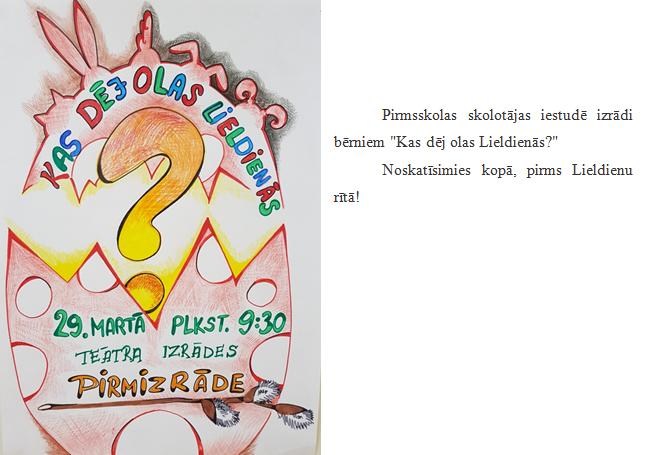 KAS DĒJ OLAS LIELDIENĀS
?
29. MARTĀ PLKST. 9:30
TEĀTRA IZRĀDES
PIRMIZRĀDE
Pirmsskolas skolotājas iestudē izrādi
bērniem "Kas dēj olas Lieldienās?"
Noskatīsimies kopā, pirms Lieldienu
rītā!